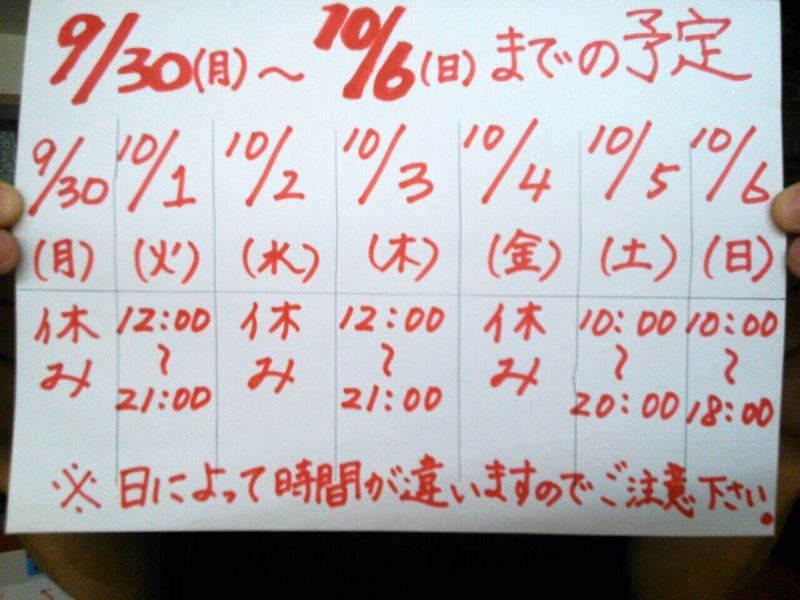 9/30(月)～10/6(日)までの予定
9/30 10/1 10/2 10/3 10/4 10/5 10/6
(月) (火) (水) (木) (金) (土) (日)
休み 12:00～21:00 休み 12:00～21:00 休み 10:00～20:00 10:00～18:00
※日によって時間が違いますのでご注意下さい。